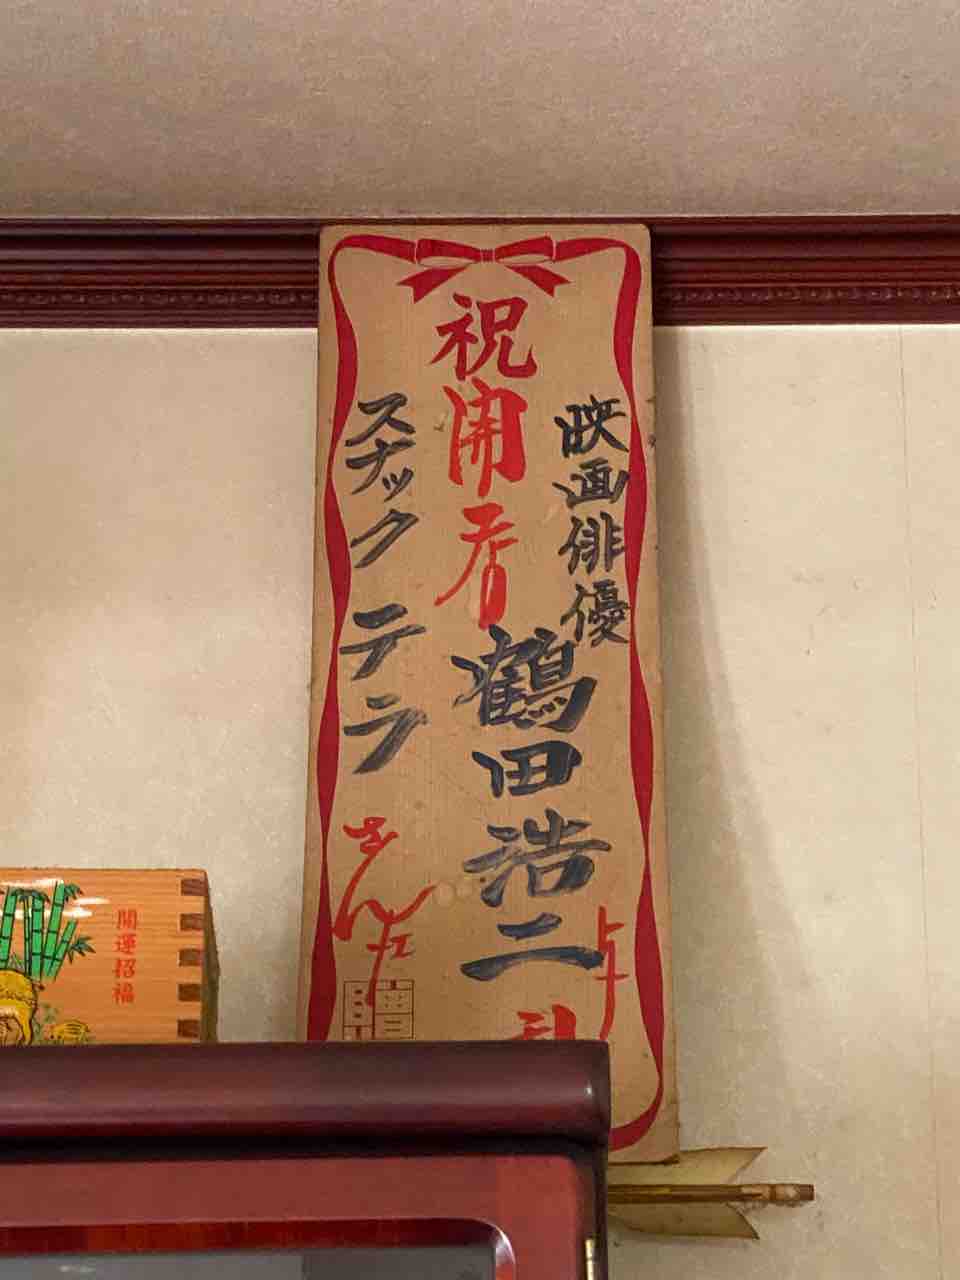 祝開店
映画俳優
鶴田浩二
より
スナック テラ
さん江
贈
開運招福